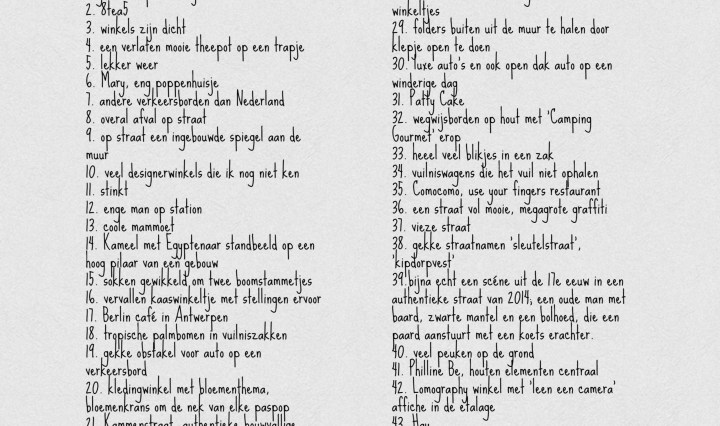 2. 8tea5
3. winkels zijn dicht
4. een verlaten mooie theepot op een trapje
5. lekker weer
6. Mary, eng poppenhuisje
7. andere verkeersborden dan Nederland
8. overal afval op straat
9. op straat een ingebouwde spiegel aan de
muur
10. veel designerwinkels die ik nog niet ken
11. stinkt
12. enge man op station
13. coole mammoet
14. Kameel met Egyptenaar standbeeld op een
hoog pilaar van een gebouw
15. sokken gewikkeld om twee boomstammetjes
16. vervallen kaaswinkeltje met stellingen ervoor
17. Berlin café in Antwerpen
18. tropische palmbomen in vuilniszakken
19. gekke obstakel voor auto op een
verkeersbord
20. kledingwinkel met bloementhema,
bloemenkrans om de nek van elke paspop
21. Kammenstraat, authentieke bouwvallige
winkeltjes
29. folders buiten uit de muur te halen door
klepje open te doen
30. luxe auto's en ook open dak auto op een
winderige dag
31. Patty Cake
32. wegwijsborden op hout met 'Camping
Gourmet' erop
33. heeel veel blikjes in een zak
34. vuilniswagens die het vuil niet ophalen
35. Comocomo, use your fingers restaurant
36. een straat vol mooie, megagrote graffiti
37. vieze straat
38. gekke straatnamen 'sleutelstraat',
'kipdorpvest'
39. bijna echt een scéne uit de 17e eeuw in een
authentieke straat van 2014, een oude man met
baard, zwarte mantel en een bolhoed, die een
paard aanstuurt met een koets erachter.
40. veel peuken op de grond
41. Philline Be, houten elementen centraal
42. Lomography winkel met 'leen een camera'
affiche in de etalage
43. Hay